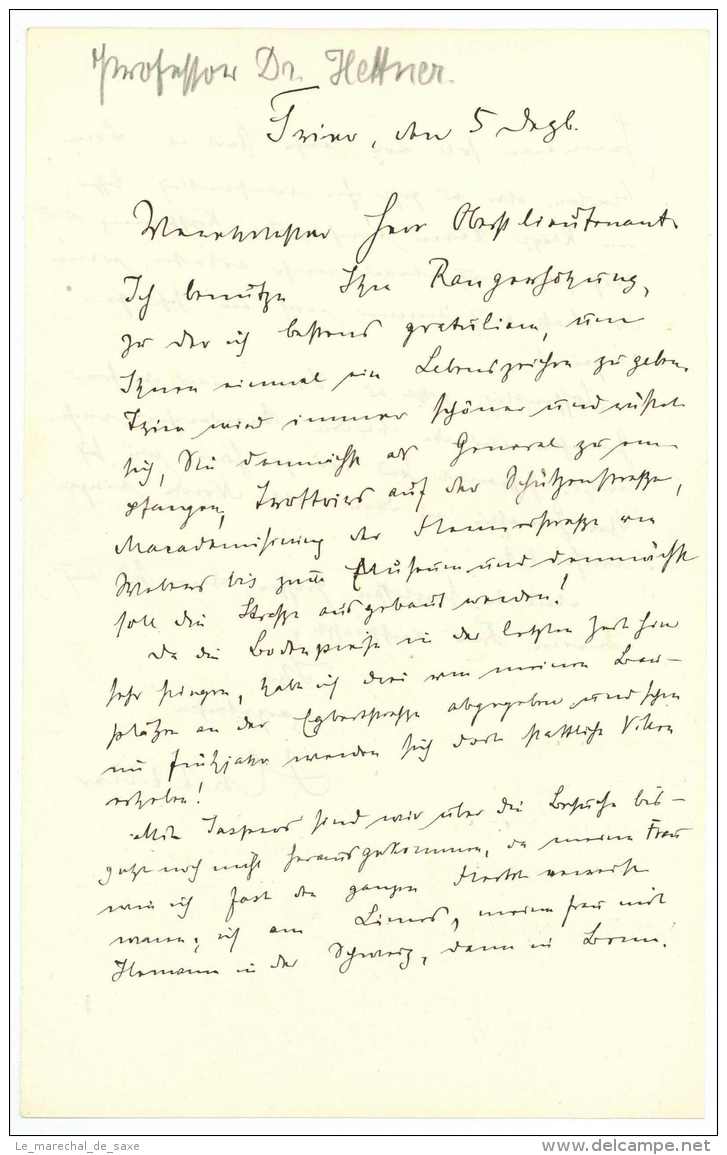 Professor Dr. Hettner.
Trier, den 5 Dezb.
Verehrtester Herr Oberstlieutenant.
Ich benutze Ihre Rangerhöhung,
zu der ich bestens gratuliere, um
Ihnen einmal ein Lebenszeichen zu geben.
Trier wird immer schöner und rüstet
sich, Sie demnächst als General zu em-
pfangen, Trottoirs auf der Schützenstraße,
Macadamisirung der Straße von
bis zum Museum und demnächst
soll die Straße ausgebaut werden!
Da die Bodenpreise in der letzten Zeit hier
sehr stiegen, habe ich drei von meinen Bau-
plätzen an der Egbertstraße abgegeben und schon
im Frühjahr werden sich dort stattliche Villen
erheben!
Mit sind wir über die Besuche bis-
jetzt noch nicht herausgekommen, da meine Frau
wie ich fast den ganzen Herbst verreist
waren; ich am Limes, meine Frau mit
Hermann in der Schweiz, dann in Bonn.
Le_marechal_de_saxe
www.delcampe.net